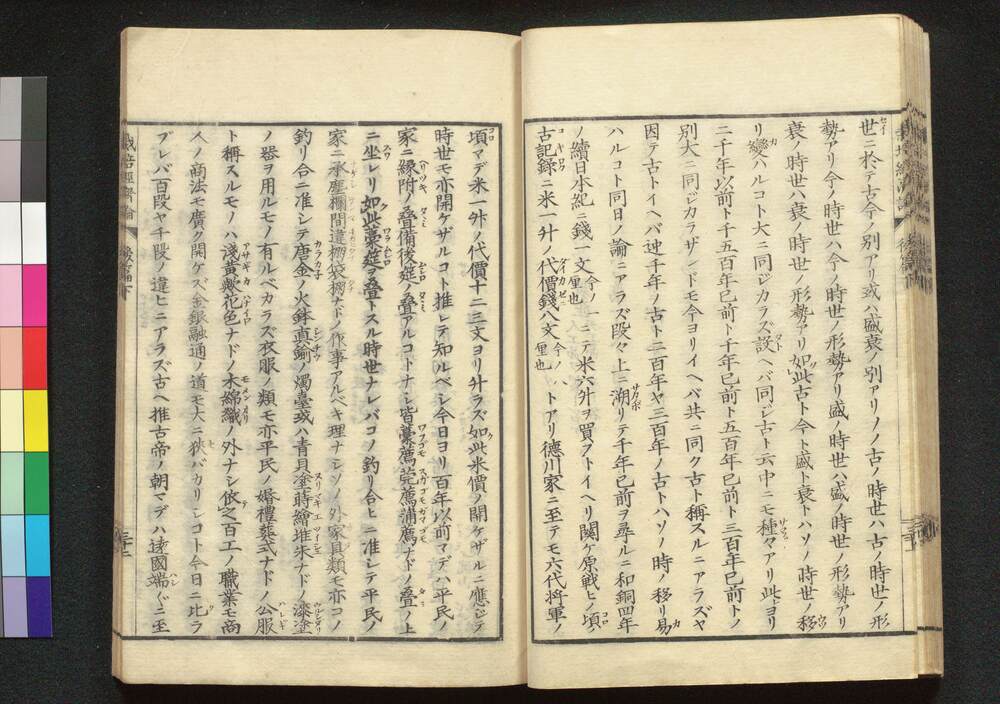 世ニ於テ古今ノ別アリ或ハ盛衰ノ別アリソノ古ノ時世ハ古ノ時世ノ形
勢アリ今ノ時世ハ今ノ時世ノ形勢アリ盛ノ時世ハ盛ノ時世ノ形勢アリ
衰ノ時世ハ衰ノ時世ノ形勢アリ如此古ト今ト盛ト衰トハソノ時世ノ移
リ變ハルコト大ニ同ジカラズ設ヘバ同ジ古ト云中ニモ種々アリ此ヨリ
二千年以前ト千五百年已前ト千年已前ト五百年已前ト三百年已前トノ
別大ニ同ジカラザレドモ今ヨリイヘバ共ニ同ク古ト稱スルニアラズヤ
因テ古トイヘバ迚千年ノ古ト二百年ヤ三百年ノ古トハソノ時ノ移リ易
ハルコト同日ノ論ニアラズ段々上ニ溯リテ千年已前ヲ尋ルニ和銅四年
ノ續日本紀ニ錢一文今ノ一厘也ニテ米六升ヲ買フトイヘリ關ケ原戰ヒノ頃ノ
古記録ニ米一升ノ代價錢八文今ノ八厘也トアリ德川家ニ至テモ六代將軍ノ
頃マデ米一升ノ代價十二三文ヨリ升ラズ如此米價ノ開ケザルニ應ジテ
時世モ亦開ケザルコト推シテ知ルベシ今日ヨリ百年以前マデハ平民ノ
家ニ縁附ノ疊備後筵ノ疊アルコトナシ皆藁薦莞薦蒲薦ナドノ疊ノ上
ニ坐レリ如此藁筵ヲ疊トスル時世ナレバコノ釣リ合ヒニ准シテ平民ノ
家ニ承塵欄間違棚袋棚ナドノ作事アルベキ理ナシソノ外家具類モ亦コノ
釣リ合ニ准シテ唐金ノ火鉢眞鍮ノ燭臺或ハ青貝塗蒔繪堆朱ナドノ漆塗
ノ器ヲ用ルモノ有ルベカラズ衣服ノ類モ亦平民ノ婚禮葬式ナドノ公服
ト稱スルモノハ淺黄歟花色ナドノ木綿織ノ外ナシ依之百工ノ職業モ商
人ノ商法モ廣ク開ケズ金銀融通ノ道モ大ニ狹バカリシコト今日ニ比ラ
ブレバ百段ヤ千段ノ違ヒニアラズ古ヘ推古帝ノ朝マデハ遠國端々ニ至
後篇下
三十二